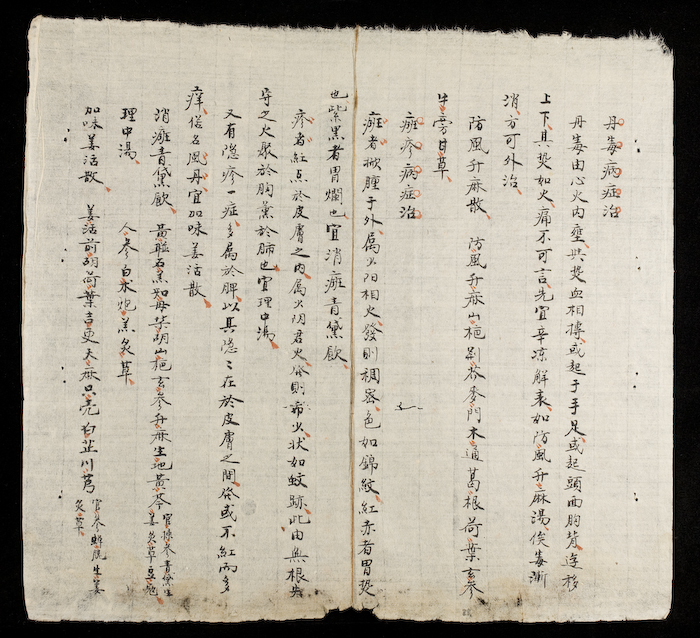 丹毒病症治
丹毒由心火内壅与熱血相摶或起于手足或起頭面胸背逆移
上下其熱如火痛不可言先宜辛凉解表如防風升麻湯俟毒漸
消方可外治
防風升麻散 防風升麻山梔荆芥麥門木通葛根荷葉玄參
牛旁甘草
斑疹病症治
癍者掀腫于外属少阳相火發則稠密色如錦紋紅赤者胃熱
也紫黑者胃爛也宜消癍青黛飲
疹者紅点於皮膚之内属少阴君火發則希少状如蚊跡此由無根失
守之火聚於胸薰於肺也宜理中湯
又有隐疹一症多属於脾以其隐々在於皮膚之間發或不紅而多
痒俗名風丹宜加味羌活散
消癍青黛飲 黄連石羔知母柴胡山梔玄參升麻生地黄芩 官揀參青黛生姜炙草豆豉
理中湯 人參白朮炮羔炙草
加味羌活散 羌活前胡荷葉吉更天麻只壳白芷川芎 官參蟬脱生姜炙草